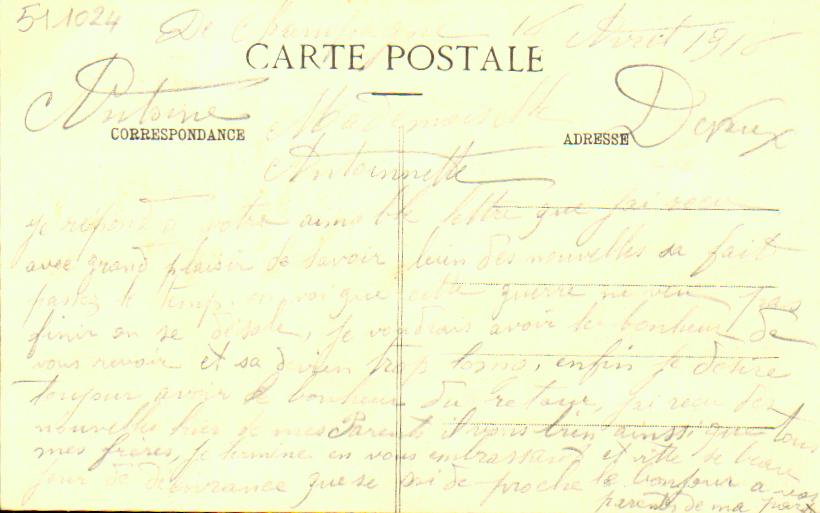 511024
De Champagne 16 Avril 1916
CARTE POSTALE
Antoine Devaux
CORRESPONDANCE
ADRESSE
Mademoiselle
Antoinnette
je répond a votre aimable lettre que j'ai reçu
avec grand plaisir de savoir bien des nouvelles sa fait
passez le temp. en voi que cette guerre ne veu pas
finir on se désole, je voudrais avoir le bonheur de
vous revoir et sa devien trop long, enfin je désire
toujour avoir le bonheur du retour, j'ai reçu des
nouvelles hier de mes Parents il vons bien ainssi que tous
mes frères, je termine en vous embrassant et vitte se beau
jour de délivrance que se soi de proche le bonjour a vos
parents de ma part